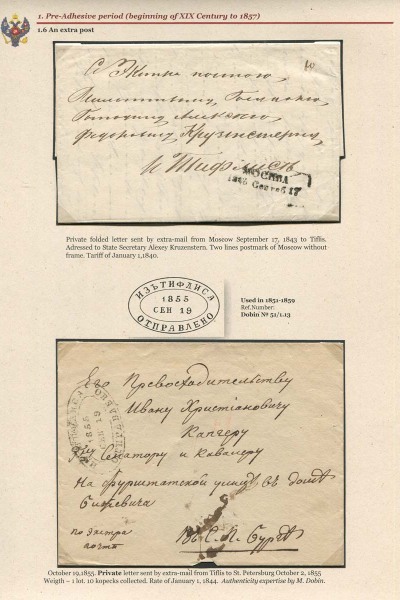 1. Pre-Adhesive period (beginning of XIX Century to 1857)
1.6 An extra post
Съ Экстра почтою,
Милостивому Государю,
Алексѣю
Федоровичу Крузенштерну,
въ Тифлисѣ
МОСКВА
1843 Сентяб 17
Private folded letter sent by extra-mail from Moscow September 17, 1843 to Tiflis.
Adressed to State Secretary Alexey Kruzenstern. Two lines postmark of Moscow without
frame. Tariff of January 1,1840.
ИЗЪ ТИФЛИСА
1855
СЕН 19
ОТПРАВЛЕНО
Used in 1851-1859
Ref.Number:
Dobin № 51/1.13
Его Превосходительству
Ивану Христіановичу
Капгеру
Сенатору и Кавалеру
На Фурштатской улицѣ, въ домѣ
1855
СЕН 19
по Экстра
почтѣ
Въ С. П. Бургъ
October 19,1855. Private letter sent by extra-mail from Tiflis to St. Petersburg October 2, 1855
Weigth – 1 lot. 10 kopecks collected. Rate of January 1, 1844. Authenticity expertise by M. Dobin.